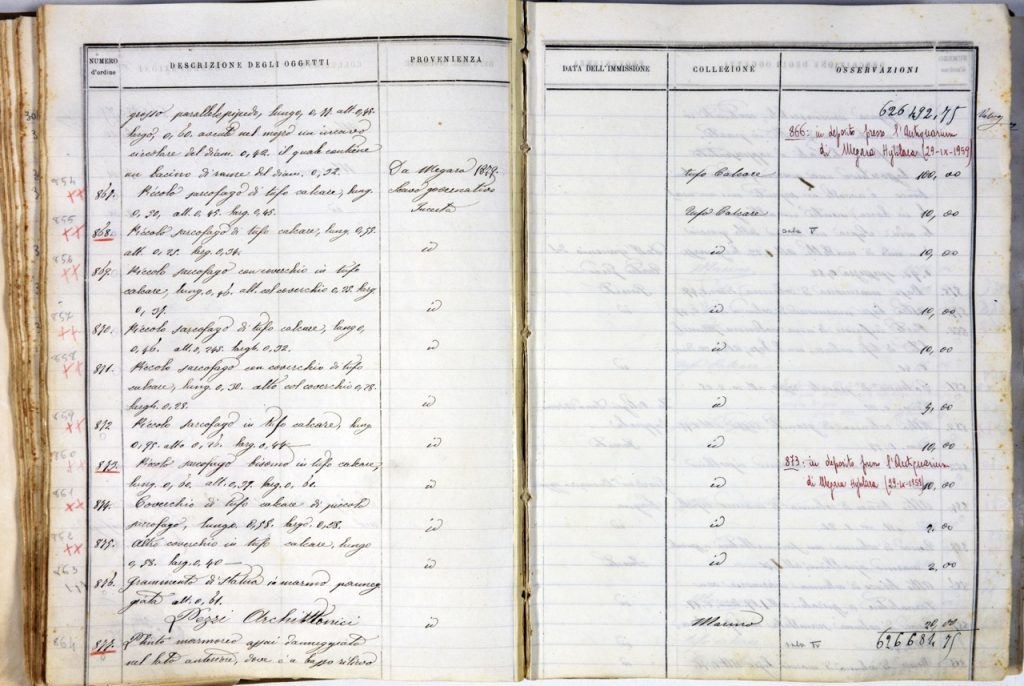 NUMERO
d'ordine
DESCRIZIONE DEGLI OGGETTI
PROVENIENZA
grosso parallelepipedo, lungo, 0,
largo, 0,60. avente nel mezzo un incavo
circolare del diam. 0,42. il quale contiene
un bacino di rame del diam. 0,32.
Da Megara 1879.
Scavo governativo
867. Piccolo sarcofago di tufo calcare, lung.
alt. 0,45. larg. 0,45.
868. Piccolo sarcofago di tufo calcare, lung. 0,55.
alt. 0,25. larg. 0,34.
id
869. Piccolo sarcofago con coverchio in tufo
calcare, lung. 0,46. alt. col coverchio 0,28. larg.
id
870. Piccolo sarcofago di tufo calcare, lungo,
0,46. alt. 0,245. largh. 0,32.
id
871. Piccolo sarcofago con coverchio di tufo
calcare, lung. 0,30. alto col coverchio 0,28.
largh. 0,28.
id
872 Piccolo sarcofago in tufo calcare, lung.
alto 0,26. larg. 0,44
id
873. Piccolo sarcofago bisomo in tufo calcare,
lung. 0,60. alt. 0,37. larg. 0,60.
id
874. Coverchio di tufo calcare di piccolo
sarcofago, lungo. 0,58. largo. 0,28.
id
875. Altro coverchio in tufo calcare, lungo
0,58. larg. 0,40
id
876. Frammento di statua in marmo panneg
giata alt. 0,61.
id
Pezzi Architettonici
877. Plinto marmoreo assai danneggiato
nel lato anteriore, dove è a basso rilievo
854
855
856
857
858
859
860
861
862
863
864
DATA DELL'IMMISSIONE
COLLEZIONE
OSSERVAZIONI
626492,75
866: in deposito presso l'Antiquarium
di Megara Hyblaea (29-IX-1959)
Tufo Calcare
100,00
Tufo Calcare
10,00
sala V
id
10,00
id
10,00
id
10,00
id
5,00
id
10,00
873: in deposito presso l'Antiquarium
di Megara Hyblaea (29-IX-1959)
id
10,00
id
2,00
id
2,00
Marmo
20,00
626681,75
sala V